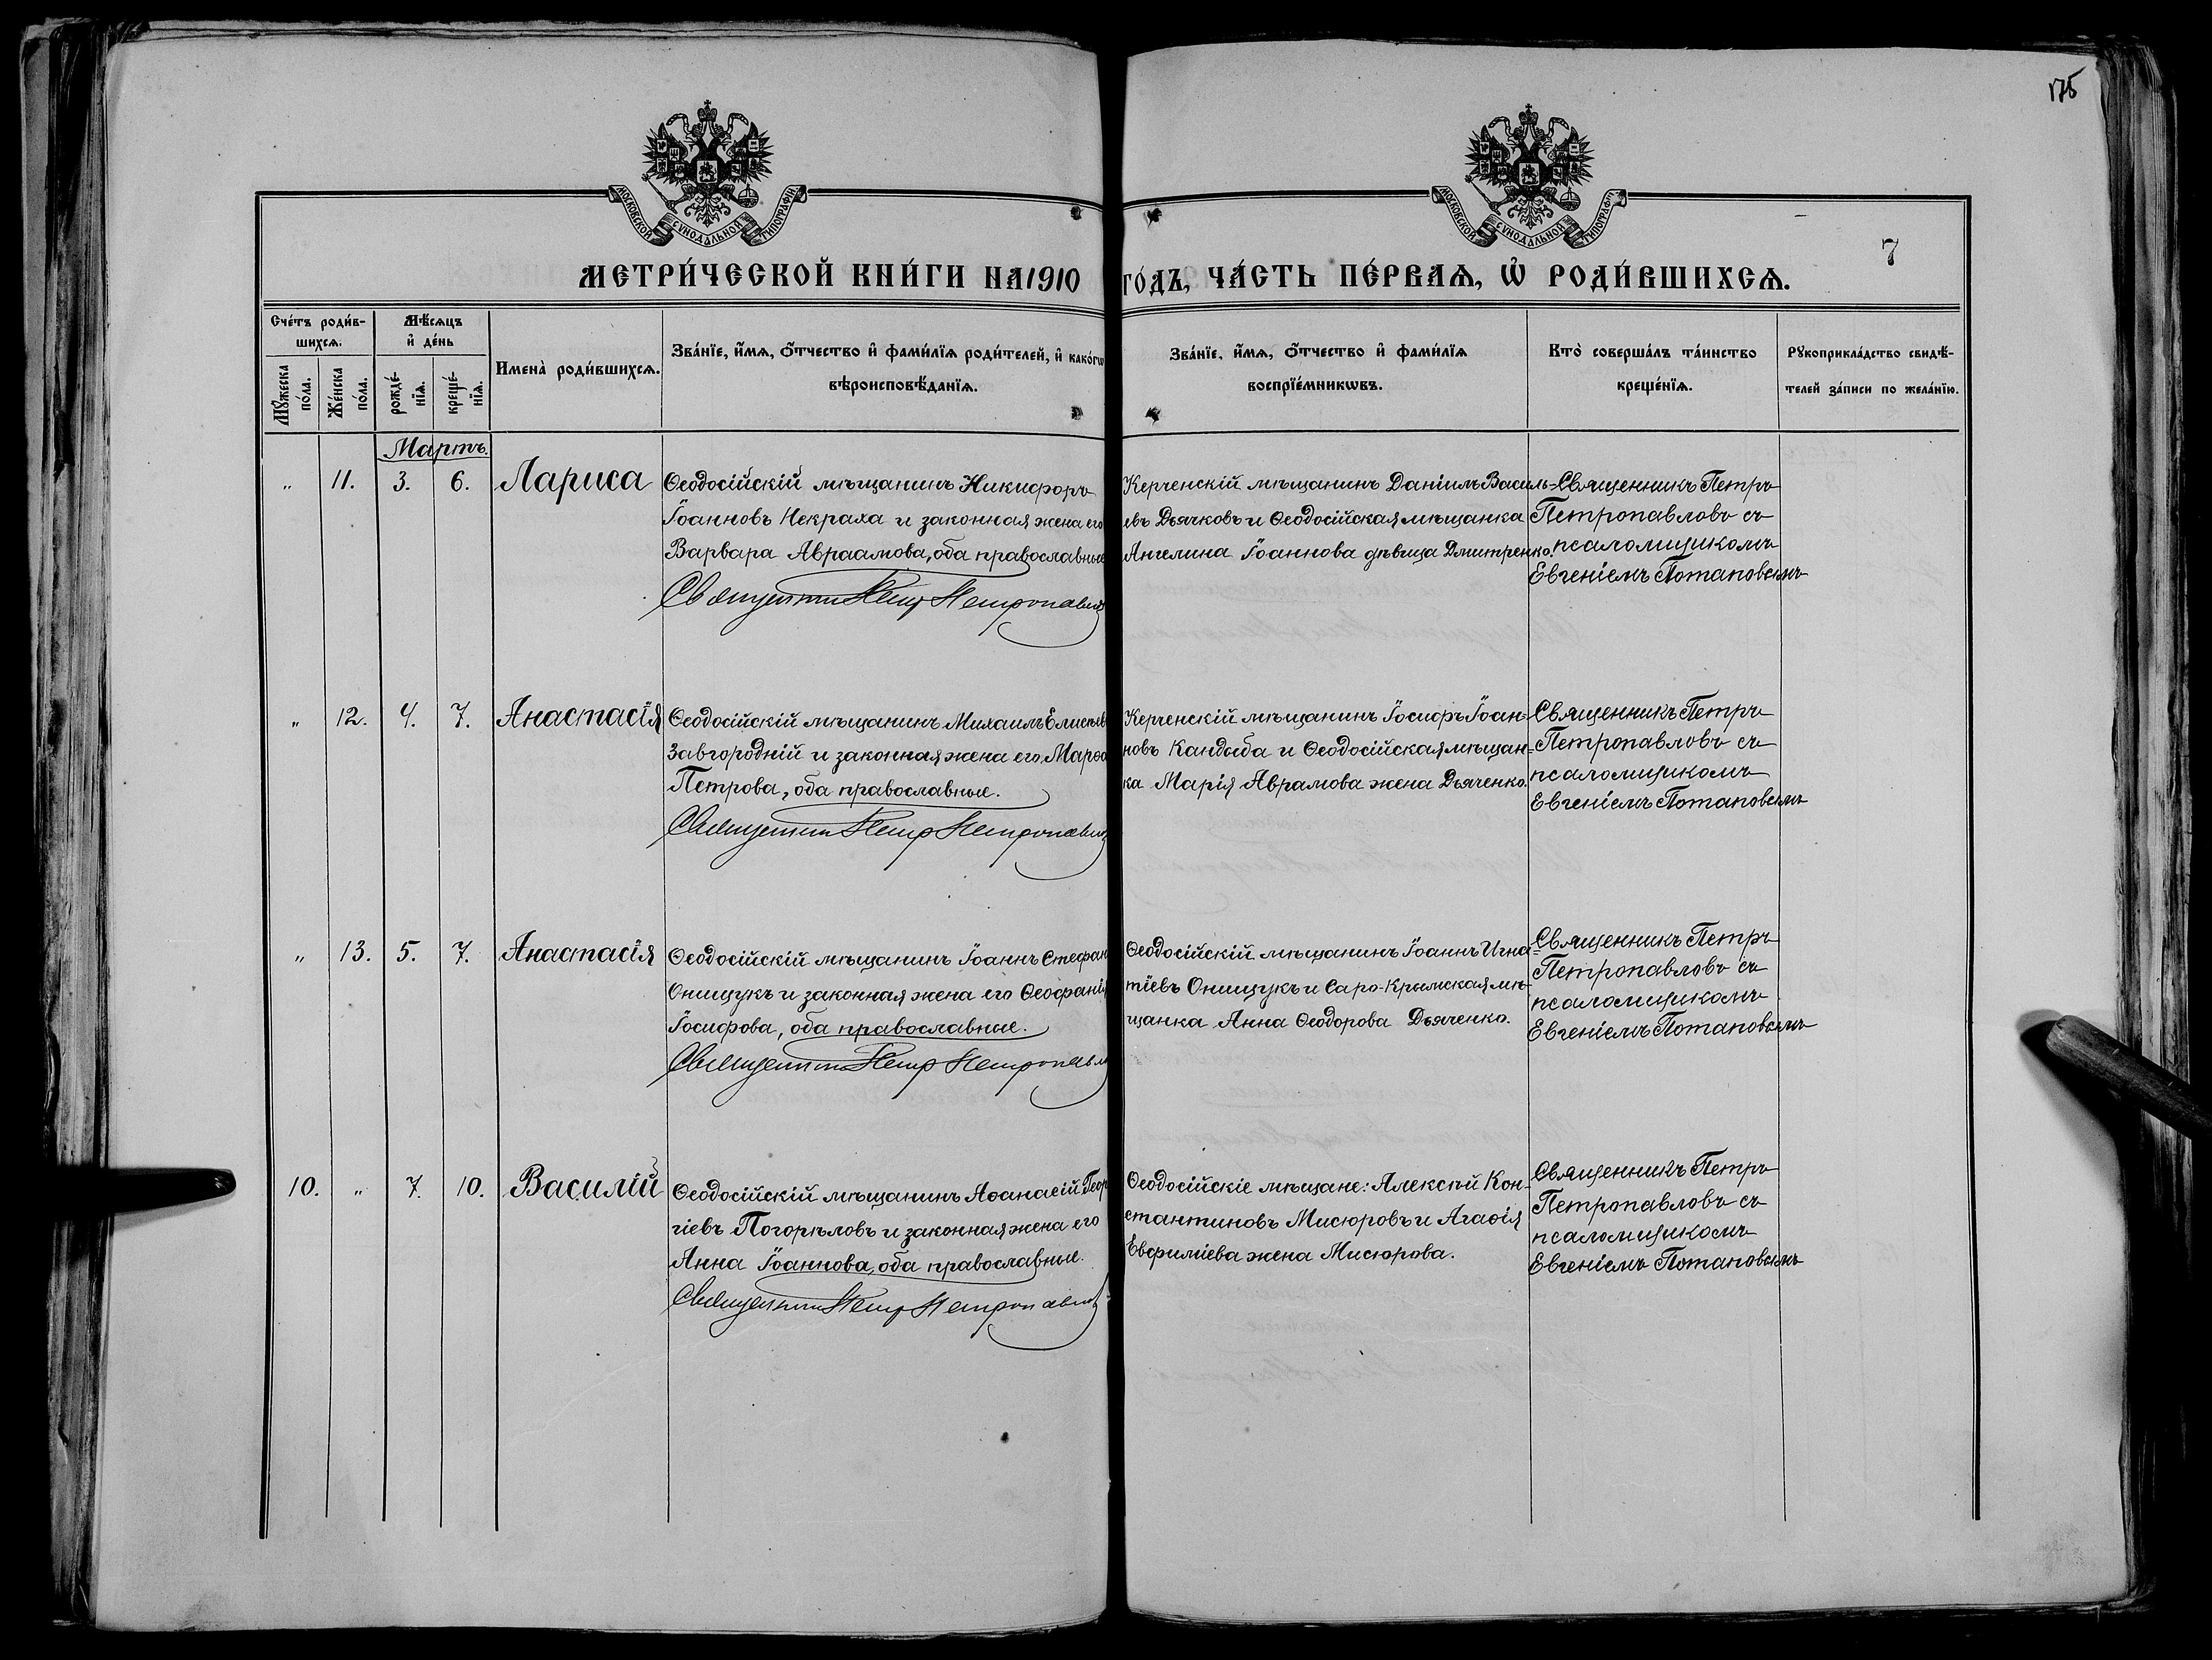 175
МОСКОВСКОЙ СѴНОДАЛЬНОЙ ТИПОГРАФІИ
МОСКОВСКОЙ СѴНОДАЛЬНОЙ ТИПОГРАФІИ
7
МЕТРИ́ЧЕСКОЙ КНИ́ГИ НА 1910 ГО́ДЪ, ЧА́СТЬ ПЕ́РВАѦ, Ѡ҆ РОДИ́ВШИХСѦ.
Сче́тъ роди́в-
шихсѧ.
Мꙋ́жеска
по́ла.
Же́нска
по́ла.
Мѣ́сѧцъ
и҆ де́нь
рожде́-
нїѧ.
креще́-
нїѧ.
Имена̀ роди́вшихсѧ.
Зва́нїе, и҆́мѧ, ѻ҆́тчество и҆ фами́лїѧ роди́телей, и҆ како́гѡ
вѣроисповѣ́данїѧ.
Зва́нїе, и҆́мѧ, ѻ҆́тчество и҆ фами́лїѧ
воспрїе́мникѡвъ.
Кто̀ соверша́лъ та́инство
креще́нїѧ.
Рꙋкоприкла́дство свидѣ́-
телей за́писи по жела́нїю.
Мартъ.
„ 11. 3. 6. Лариса
Ѳеодосійскій мѣщанинъ Никифоръ
Іоанновъ Некраха и законная жена его
Варвара Авраамова, оба православные
Священникъ Петръ Петропавловъ
Керченскій мѣщанинъ Даніилъ Василь-
евъ Дьячковъ и Ѳеодосійская мѣщанка
Ангелина Іоаннова дѣвица Дмитренко.
Священникъ Петръ
Петропавловъ съ
псаломщикомъ
Евгеніемъ Потаповымъ
„ 12. 4. 7. Анастасія
Ѳеодосійскій мѣщанинъ Михаилъ Елисѣевъ
Завгородній и законная жена его Марѳа
Петрова, оба православные.
Священникъ Петръ Петропавловъ
Керченскій мѣщанинъ Іосифъ Іоан=
новъ Кандыба и Ѳеодосійская мѣщан=
ка Марія Аврамова жена Дьяченко.
Священникъ Петръ
Петропавловъ съ
псаломщикомъ
Евгеніемъ Потаповымъ
„ 13. 5. 7. Анастасія
Ѳеодосійскій мѣщанинъ Іоаннъ Стефан
Онищукъ и законная жена его Ѳеофанія
Іосифова, оба православные.
Священникъ Петръ Петропавл
Ѳеодосійскій мѣщанинъ Іоаннъ Игна=
тіевъ Онищукъ и Саро-Крымская мѣ-
щанка Анна Ѳеодорова Дьяченко.
Священникъ Петръ
Петропавловъ съ
псаломщикомъ
Евгеніемъ Потаповымъ
10. „ 7. 10. Василій
Ѳеодосійскій мѣщанинъ Аѳанасій Геор
гіевъ Погорѣловъ и законная жена его
Анна Іоаннова, оба православные.
Священникъ Петръ Петропавловъ
Ѳеодосійскіе мѣщане: Алексѣй Кон-
стантиновъ Мисюровъ и Агаѳія
Евфиміева жена Мисюрова.
Священникъ Петръ
Петропавловъ съ
псаломщикомъ
Евгеніемъ Потаповымъ